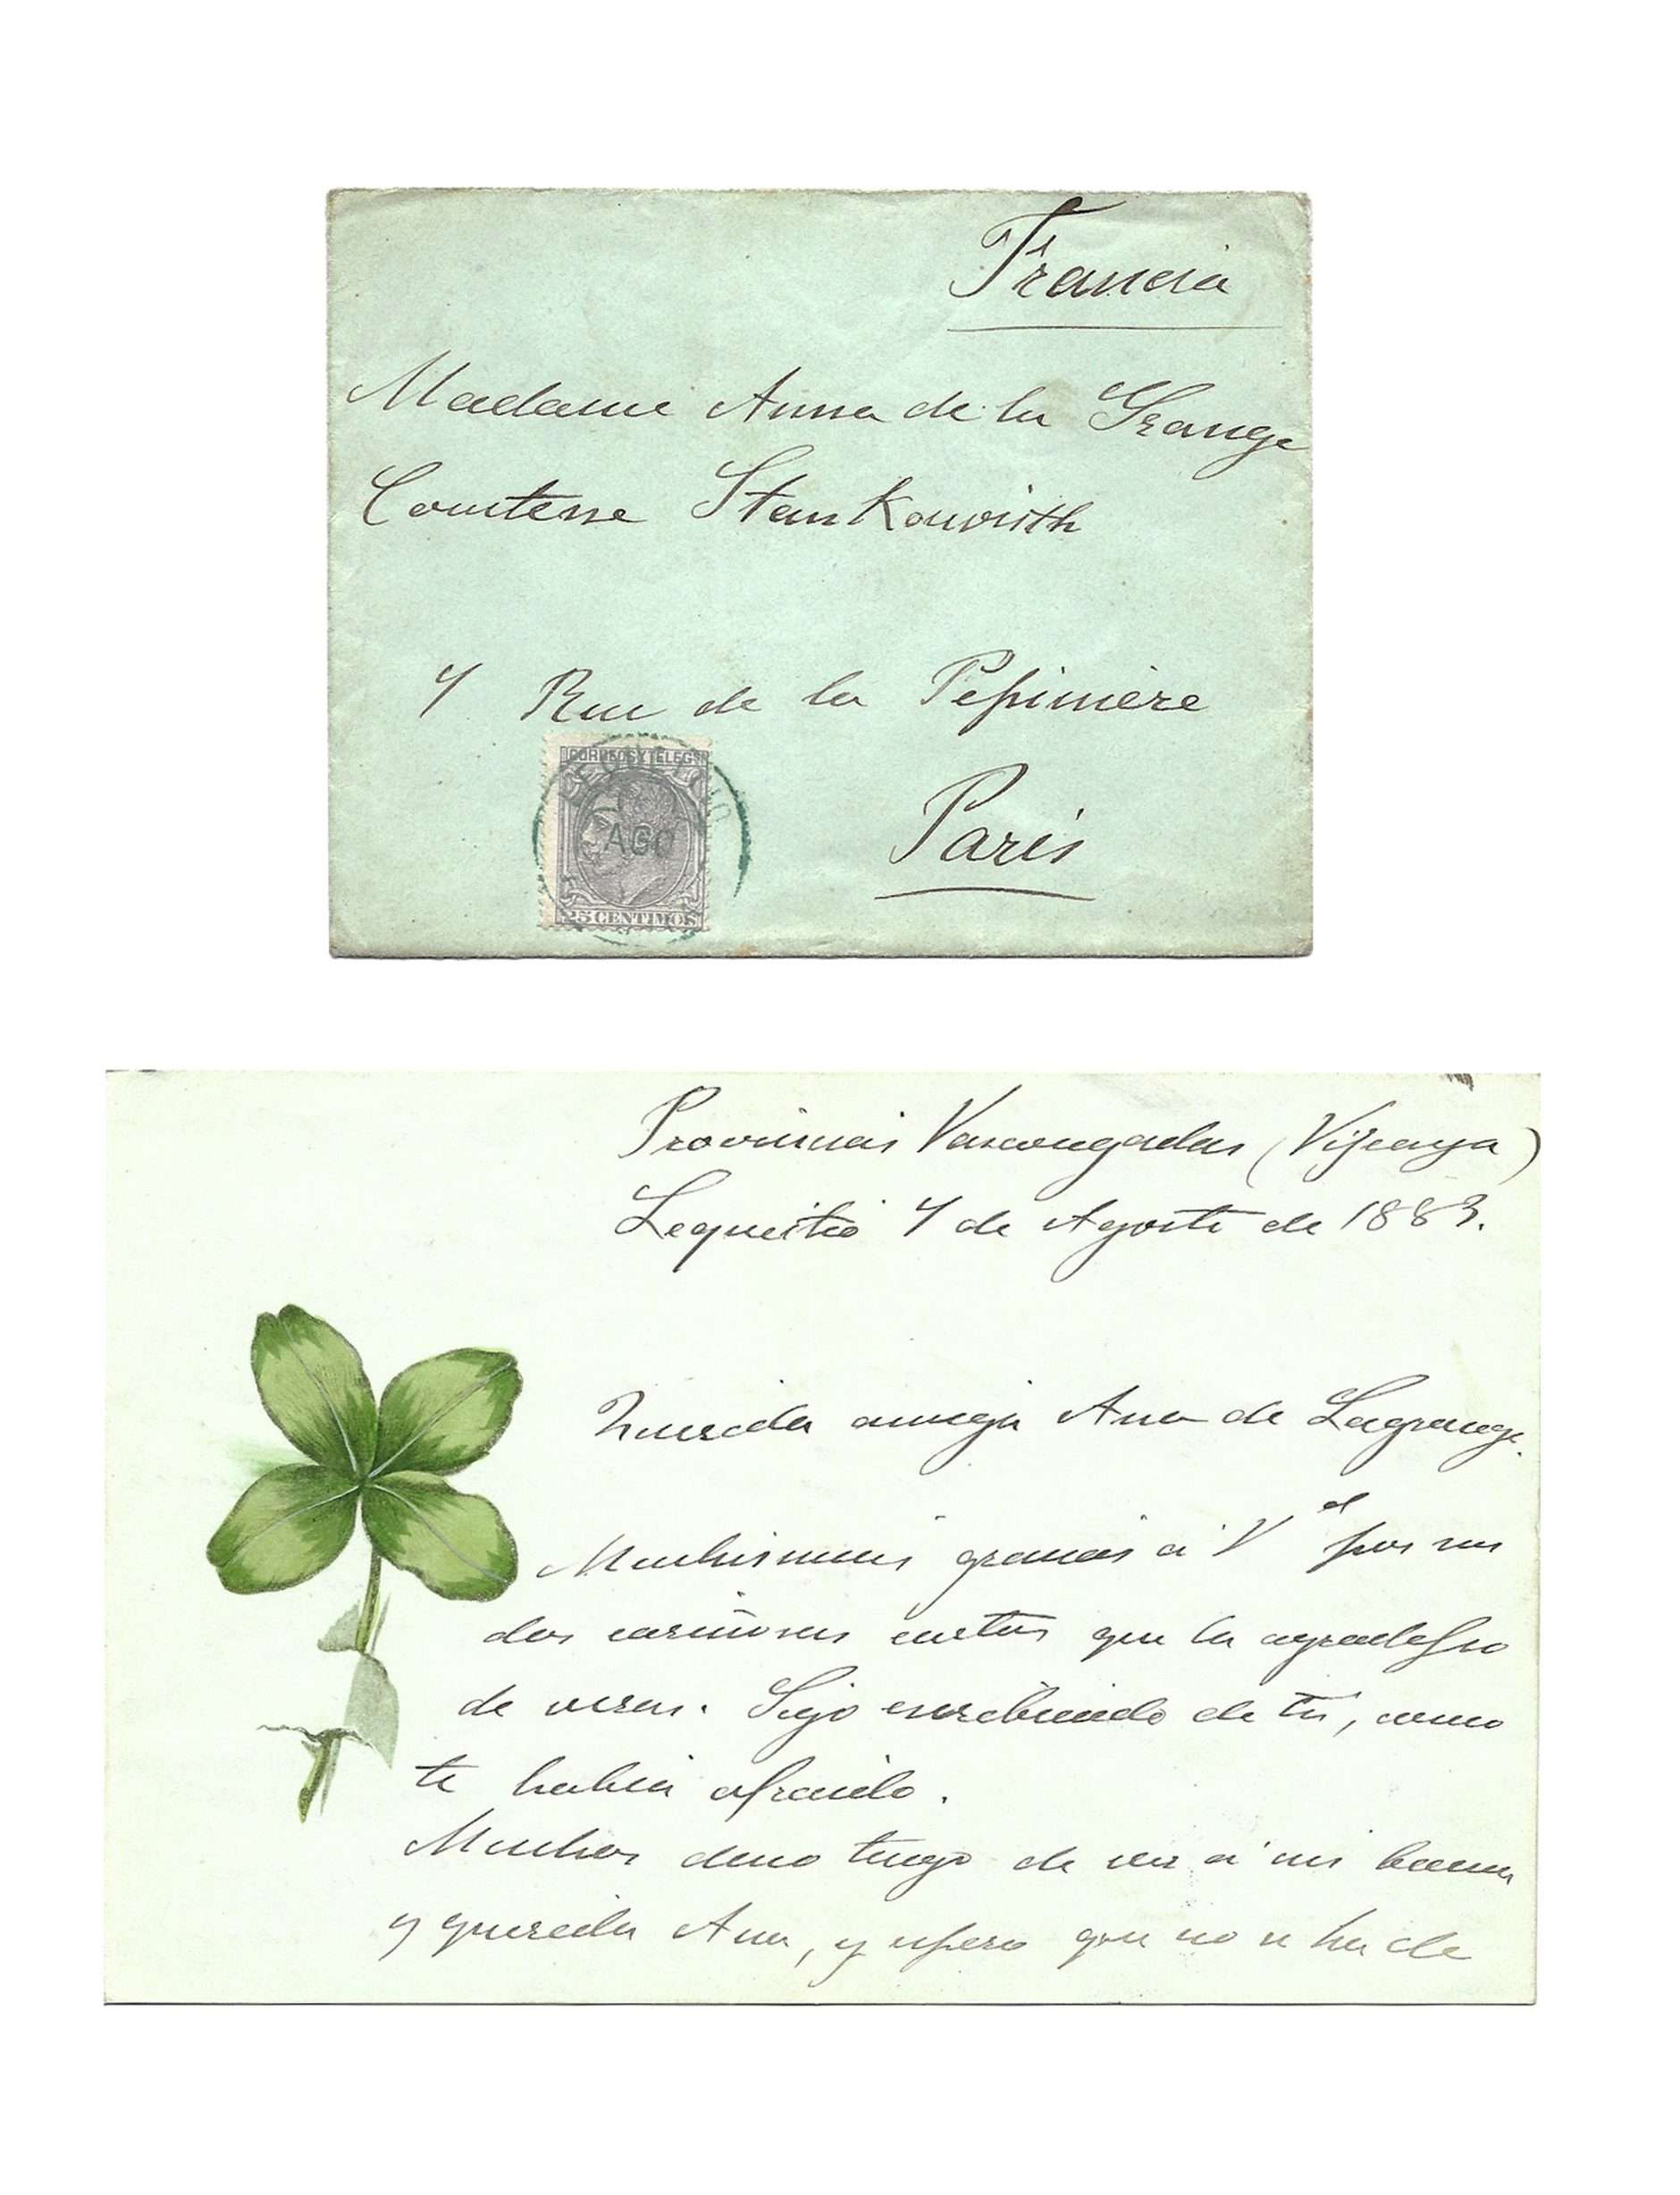 Francia
Madame Anna de la Grange
Comtesse Stankowith
7 Rue de la Pepinière
CORREOS Y TELEGS
LEQUEITIO
AGO
Paris
25 CENTIMOS
Provincias Vascongadas (Vizcaya)
Lequeitio 7 de Agosto de 1883.
Querida amiga Ana de Lagrange.
Muchisimas gracias á V^d por sus
dos cariñosas cartas que la agradezco
de veras. Sigo escribiendo de tú, como
te habia ofrecido.
Muchos deseo tengo de ver á mi buena
y querida Ana, y espero que no se ha de